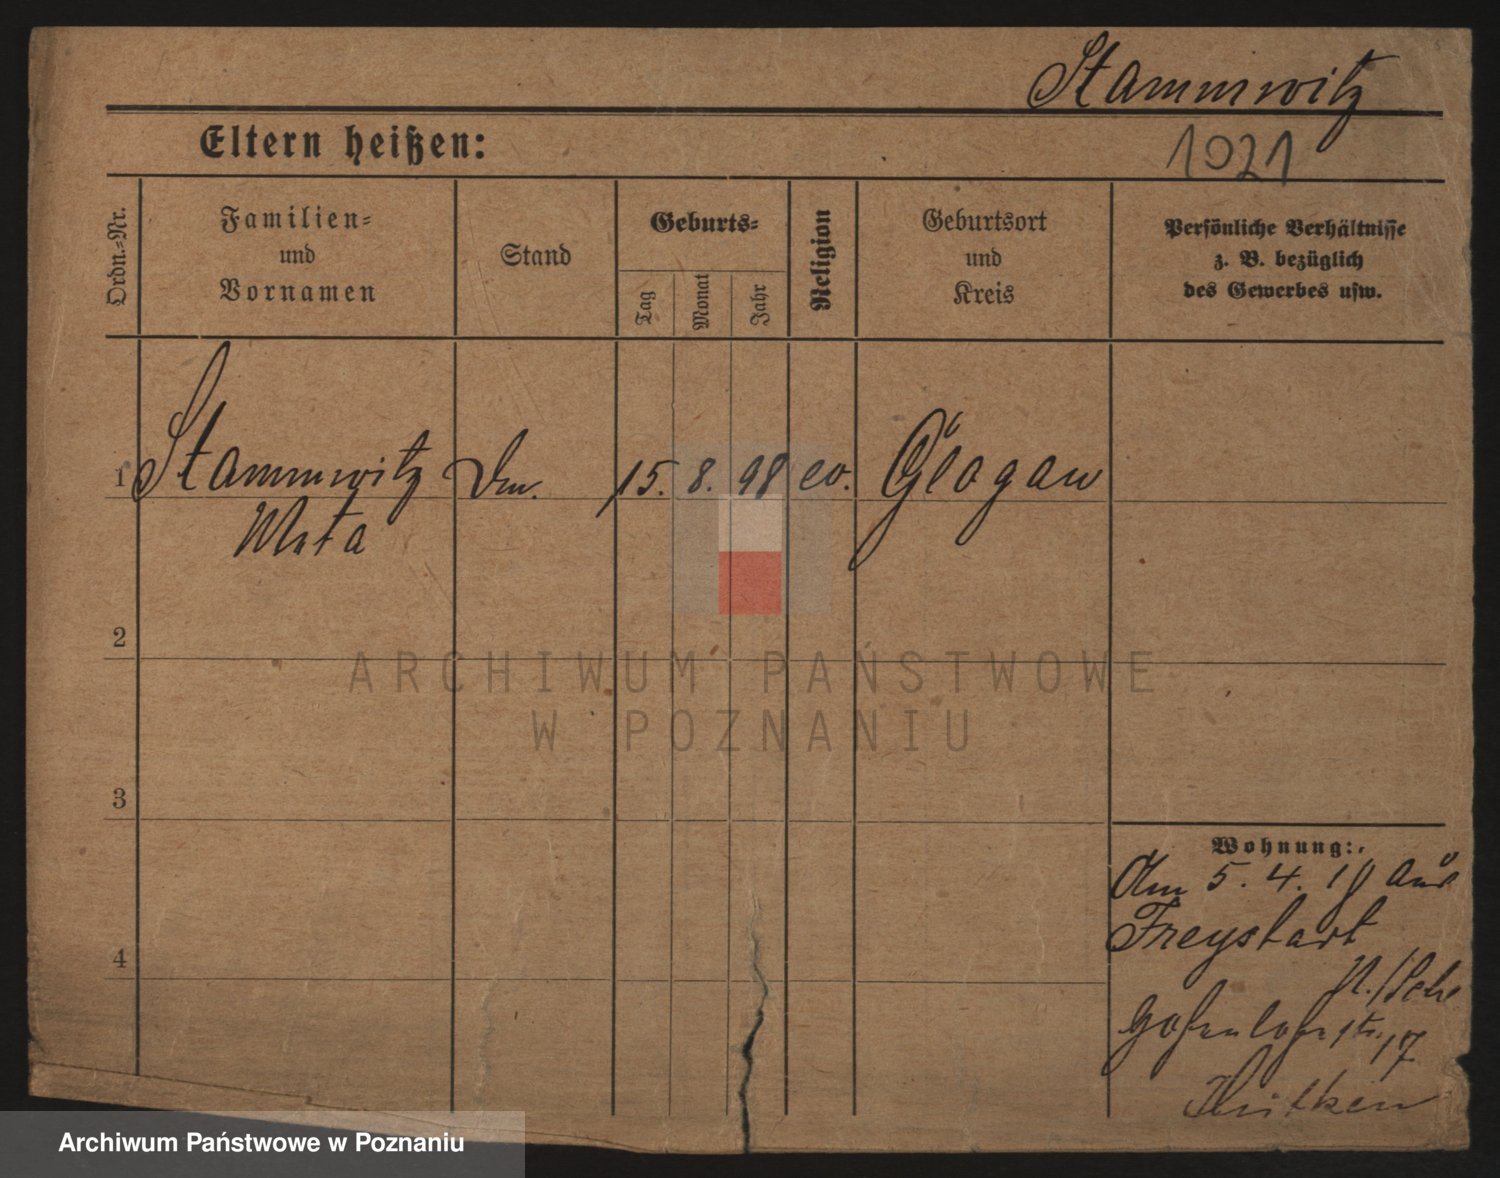 Stammwitz
Eltern heißen:
1021
Ordn.-Nr.
Familien-
und
Vornamen
Stand
Geburts-
Tag
Monat
Jahr
Religion
Geburtsort
und
Kreis
Persönliche Verhältnisse
z. B. bezüglich
des Gewerbes usw.
1 Stammwitz 15. 8. 98 ev. Glogau
Meta
2
ARCHIWUM PAŃSTWOWE
W POZNANIU
3
Wohnung:
Am 5. 4. 19 aus
Freystadt
4
N./Schl
Hohenlohestr. 17
Archiwum Państwowe w Poznaniu